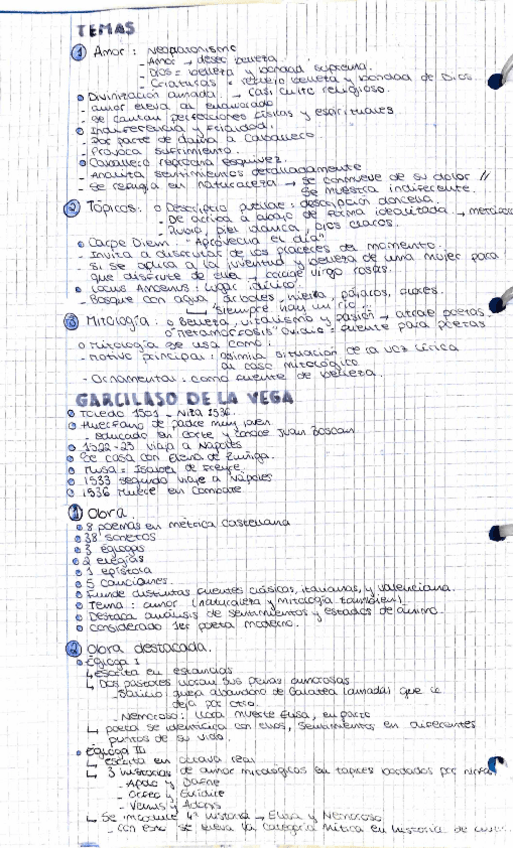 TEMAS
① Amor: Neoplatonismo
- Amor → deseo belleza.
- Dios = belleza y bondad suprema.
- Criaturas = reflejo belleza y bondad de Dios.
• Divinización amada. → casi culto religioso.
- amor eleva al enamorado
- se cantan perfecciones físicas y espirituales
• Indiferencia y Frialdad.
- Por parte de dama a Caballero.
- Provoca sufrimiento.
• Caballero reprocha esquivez.
- Analiza sentimientos detalladamente
- Se refugia en naturaleza → se conmueve de su dolor //
se muestra indiferente.
② Tópicos: o Descriptio puellae: descripción doncella.
- De arriba a abajo de forma idealizada →
- Rubia, piel blanca, ojos claros.
• Carpe Diem. "Aprovecha el día"
- Invita a disfrutar de los placeres del momento.
- Si se aplica a la juventud y belleza de una mujer para
que disfrute de ella → collige virgo rosas.
• Locus Amoenus: lugar idílico.
- Bosque con agua, árboles, hierba, pájaros, flores.
↳ siempre hay un río.
③ Mitología: o Belleza, vitalismo y pasión → atrae poetas.
o "Metamorfosis" Ovidio = fuente para poetas
o Mitología se usa como:
- motivo principal: asimila situación de la voz lírica
al caso mitológico
- Ornamental: como fuente de belleza.
GARCILASO DE LA VEGA
• Toledo 1501 - Niza 1536.
• Huérfano de padre muy joven.
- educado en corte y conoce Juan Boscán
• 1522-23 viaja a Nápoles
• Se casa con Elena de Zúñiga.
• Musa = Isabel de Freyre.
• 1533 segundo viaje a Nápoles
• 1536 muere en combate
① Obra.
• 8 poemas en métrica castellana
• 38 sonetos
• 3 églogas
• 2 elegías
• 1 epístola
• 5 canciones.
• Funde distintas fuentes clásicas, italianas, y valenciana.
• Tema: amor (naturaleza y mitología también)
• Destaca análisis de sentimientos y estados de ánimo.
• considerado 1er poeta moderno.
② Obra destacada.
• Égloga I
↳ escrita en estancias
↳ Dos pastores lloran sus penas amorosas
- Salicio: queja abandono de Galatea (amada) que le
deja por otro.
- Nemoroso: llora muerte Elisa, en parto
↳ poeta se identifica con ellos, sentimientos en diferentes
puntos de su vida.
• Égloga III
↳ escrita en octava real
↳ 3 historias de amor mitológicos en tapices bordados por ninfas
- Apolo y Dafne
- Orfeo y Eurídice
- Venus y Adonis
↳ Se 4ª historia → Elisa y Nemoroso
- con esto se eleva la categoría mítica en historia de